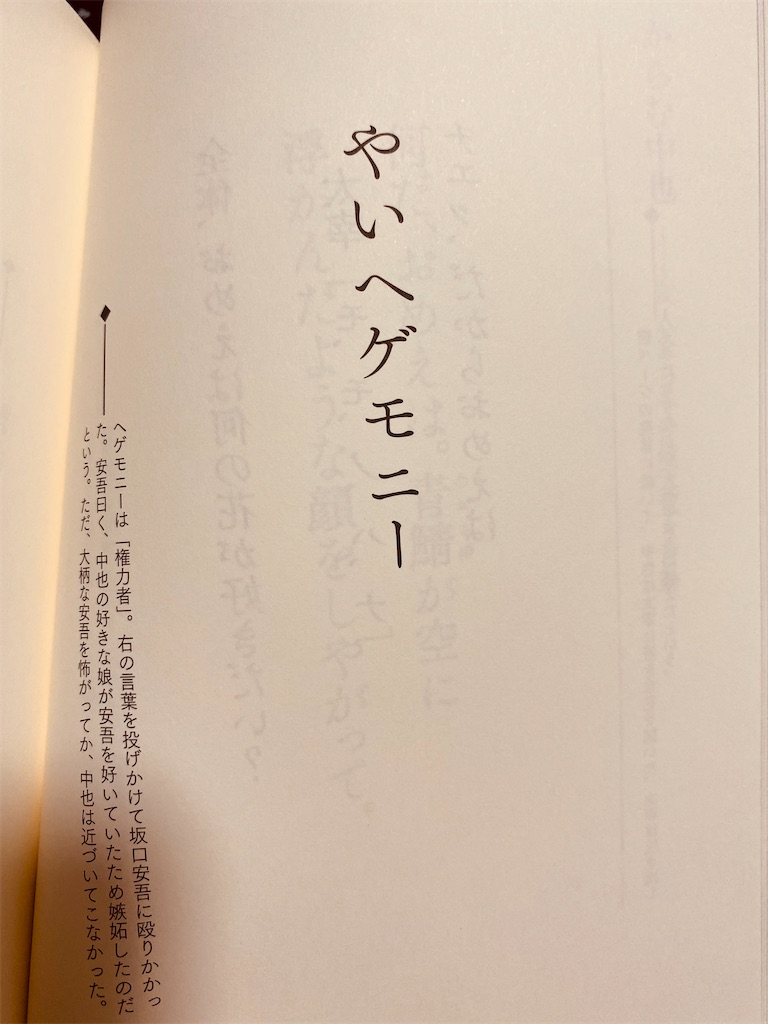 やいヘゲモニー
ヘゲモニーは「権力者」。右の言葉を投げかけて坂口安吾に殴りかかっ
た。安吾曰く、中也の好きな娘が安吾を好いていたため嫉妬したのだ
という。ただ、大柄な安吾を怖がってか、中也は近づいてこなかった。